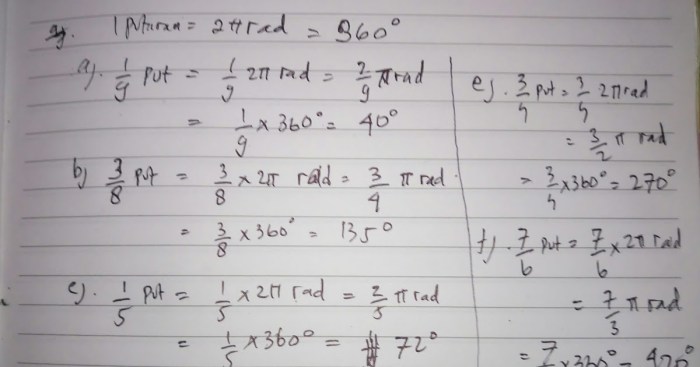 1 putaran = 2π rad = 360°
a). 1/9 put = 1/9 2π rad = 2/9 π rad
= 1/9 × 360° = 40°
b) 3/8 put = 3/8 × 2π rad = 3/4 π rad.
= 3/8 × 360° = 135°
c). 1/5 put = 1/5 × 2π rad = 2/5 π rad
= 1/5 × 360° = 72°
e). 3/4 put = 3/4 2π rad
= 3/2 π rad
= 3/4 × 360° = 270°
f). 7/6 put = 7/6 × 2π rad
= 7/3 π rad
= 7 × 360° = 420°